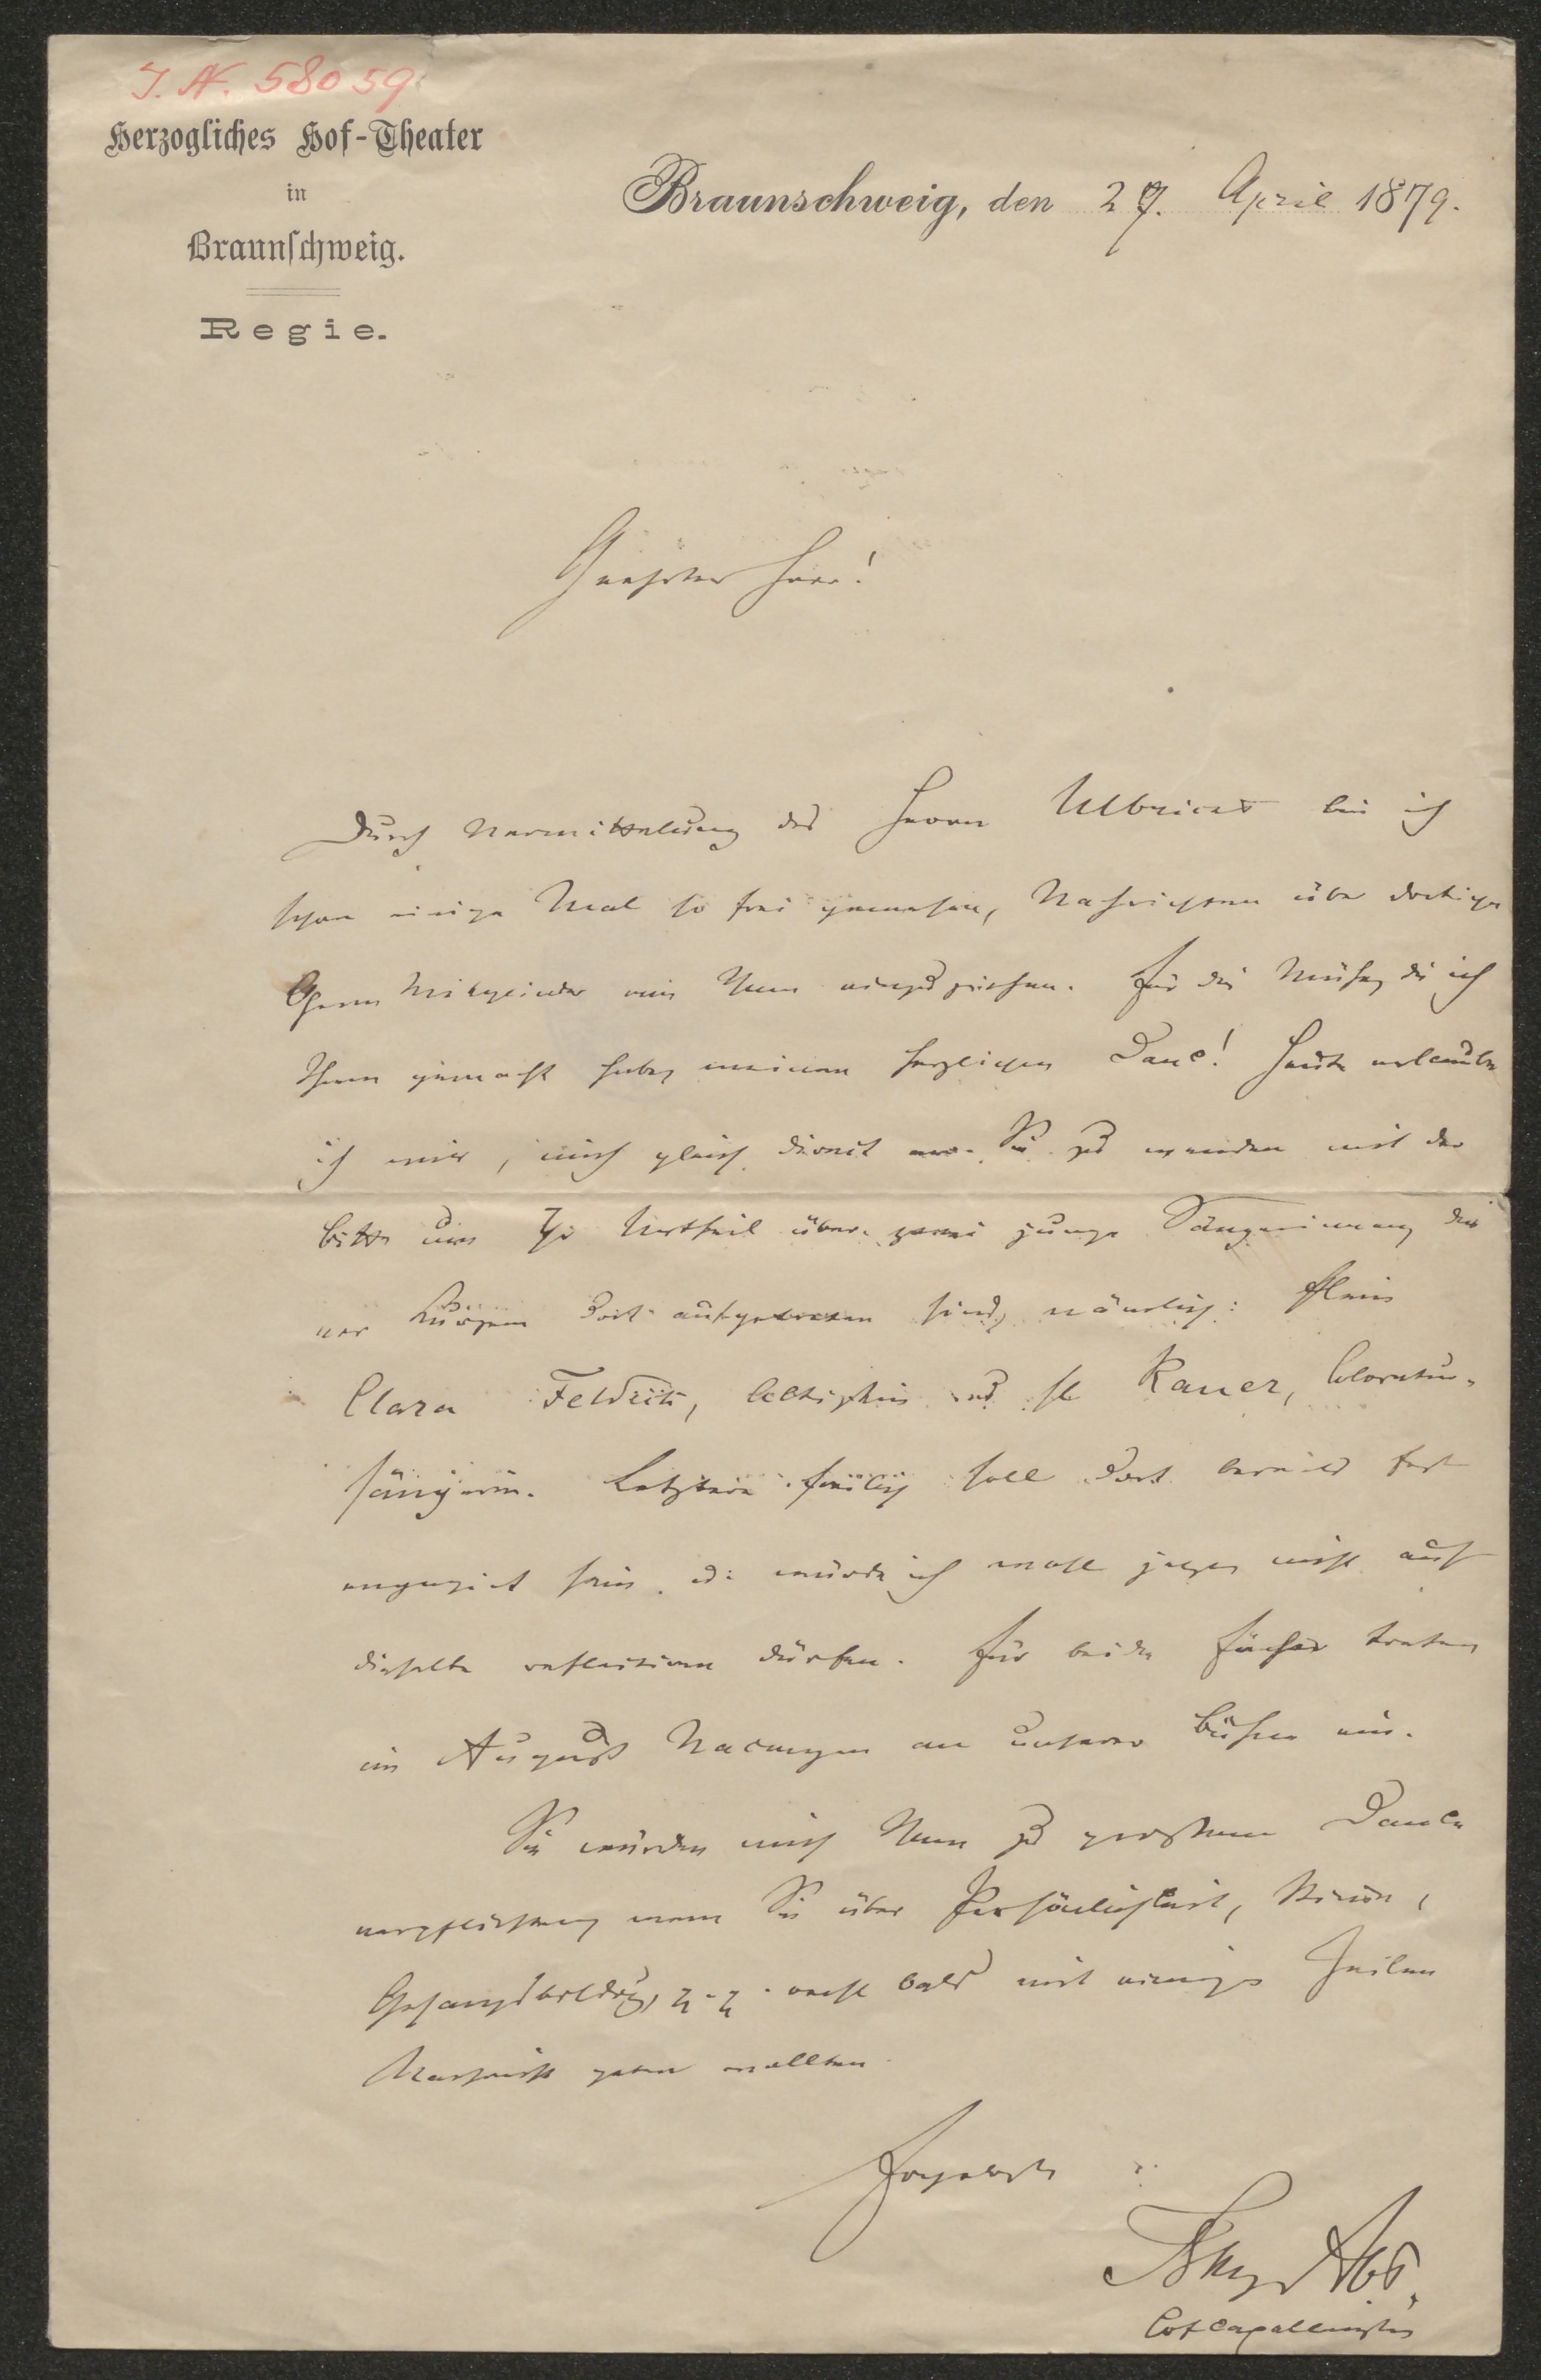 J. N. 58059
Herzogliches Hof-Theater
in
Braunschweig.
Regie.
Braunschweig, den 27. April 1879.
Geehrter Herr!
Durch Vermittelung des Herrn Ulbricht bin ich
schon einige Mal so frei gewesen, Nachrichten über dortige
Opern Mitglieder von Ihnen einzuziehen. Für die Mühe, die ich
Ihnen gemacht habe, meinen herzlichen Dank! Heute erlaube
ich mir, mich gleich direct an Sie zu wenden mit der
Bitte um Ihr Urtheil über zwei junge Sängerinnen, die
vor Kurzem dort aufgetreten sind, nämlich: Frlein
Clara Altistin und Frl Coloratur-
sängerin. Letztere freilich soll dort bereits fest
engagirt sein, u. würde ich wohl jetzt nicht auf
dieselbe reflectiren dürfen. Für beide Fächer treten
im August Vacanzen an unserer Bühne ein.
Sie würden mich Ihnen zu großem Danke
verpflichten, wenn Sie über Persönlichkeit, Stimme,
Gesangsbildung, recht bald mit einigen Zeilen
Nachricht geben wollten.
Franz Abt.
Hofcapellmeister